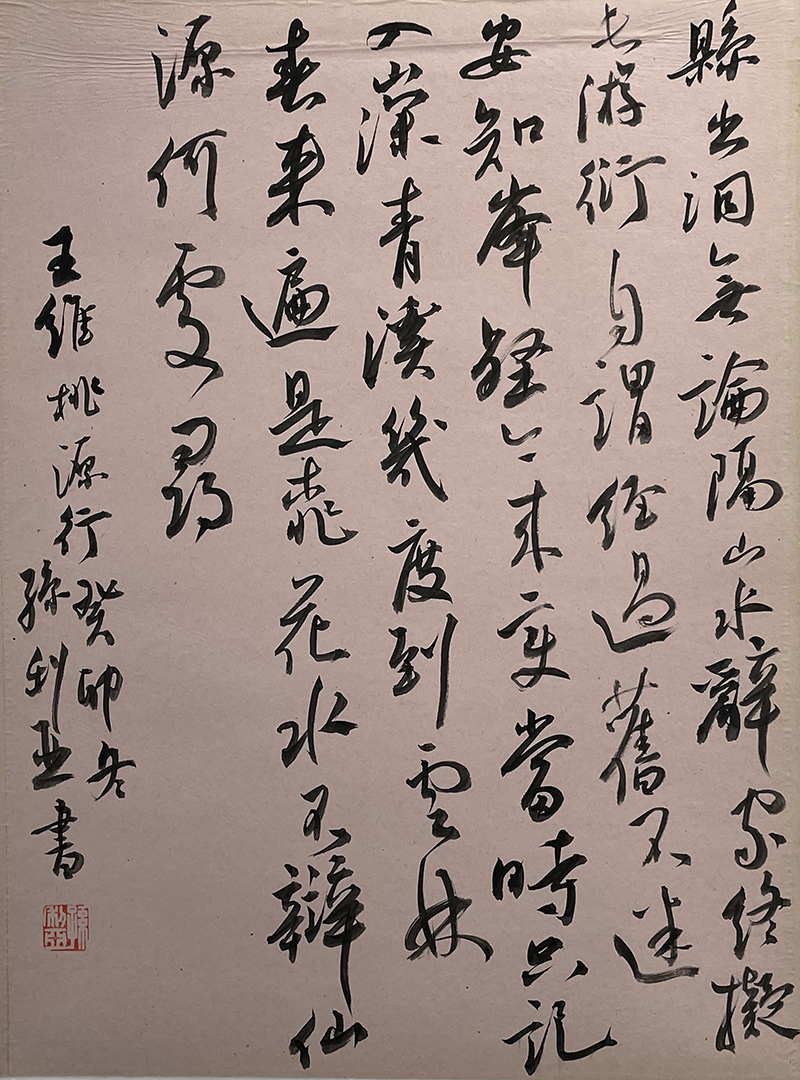 縣出洞無論隔山水辭家終擬
長游衍自謂經過舊不迷
安知峯壑今來變當時只記
入山深青溪幾度到雲林
春來遍是桃花水不辨仙
源何處尋
王維桃源行癸卯冬
孫利亞書
孫利亞